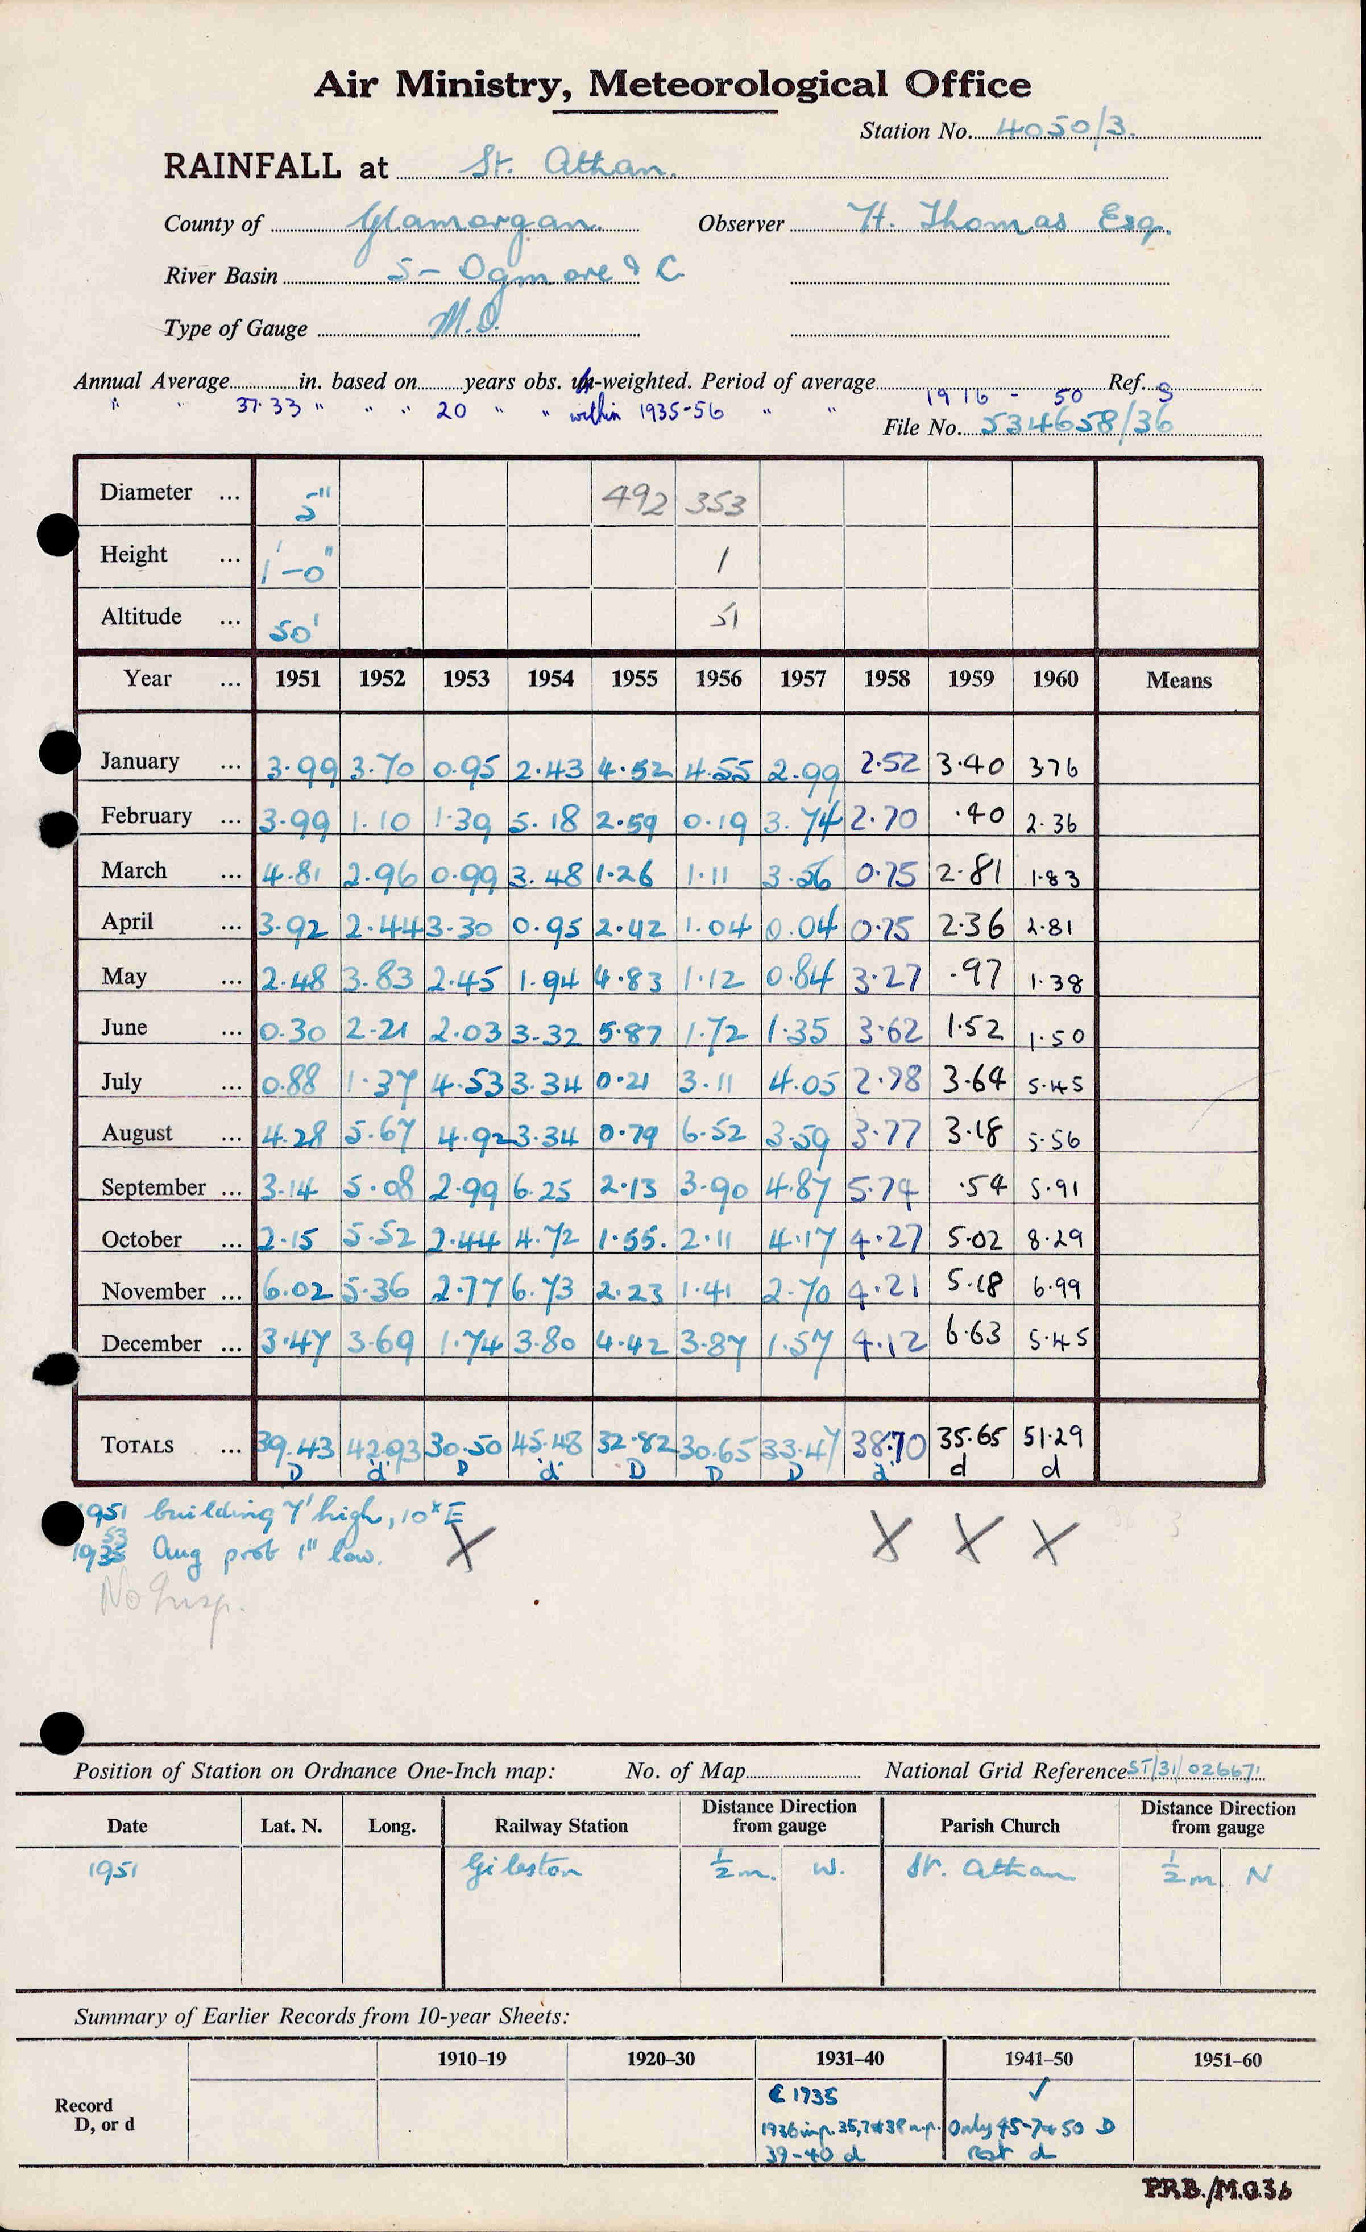 Air Ministry, Meteorological Office
Station No. 4050/3.
RAINFALL at St. Athan.
County of Glamorgan. Observer H. Thomas Esq.
River Basin 5 - Ogmore & C
Type of Gauge M.O.
Annual Average in. based on years obs. un-weighted. Period of average 1916 - 50 Ref. S
" " 37.33 " " " 20 " " within 1935-56 " "
File No. 534658/36
Diameter ... 5" 492 353
Height ... 1'-0" 1
Altitude ... 50' 51
Year ... 1951 1952 1953 1954 1955 1956 1957 1958 1959 1960 Means
January ... 3.99 3.70 0.95 2.43 4.52 4.55 2.99 2.52 3.40 376
February ... 3.99 1.10 1.39 5.18 2.59 0.19 3.74 2.70 .40 2.36
March ... 4.81 2.96 0.99 3.48 1.26 1.11 3.56 0.75 2.81 1.83
April ... 3.92 2.44 3.30 0.95 2.42 1.04 0.04 0.75 2.36 2.81
May ... 2.48 3.83 2.45 1.94 4.83 1.12 0.84 3.27 .97 1.38
June ... 0.30 2.21 2.03 3.32 5.87 1.72 1.35 3.62 1.52 1.50
July ... 0.88 1.37 4.53 3.34 0.21 3.11 4.05 2.98 3.64 5.45
August ... 4.28 5.67 4.92 3.34 0.79 6.52 3.59 3.77 3.18 5.56
September ... 3.14 5.08 2.99 6.25 2.13 3.90 4.87 5.74 .54 5.91
October ... 2.15 5.52 2.44 4.72 1.55. 2.11 4.17 4.27 5.02 8.29
November ... 6.02 5.36 2.77 6.73 2.23 1.41 2.70 4.21 5.18 6.99
December ... 3.47 3.69 1.74 3.80 4.42 3.87 1.57 4.12 6.63 5.45
TOTALS ... 39.43 42.93 30.50 45.48 32.82 30.65 33.47 38.70 35.65 51.29
D d D d D D D d d d
1951 building 7' high, 10x E
1953 Aug prob 1" low. X X X X
No Insp.
Position of Station on Ordnance One-Inch map: No. of Map National Grid Reference ST/31/026671
Date Lat. N. Long. Railway Station Distance Direction from gauge Parish Church Distance Direction from gauge
1951 Gileston ½ m. W. St. Athan ½ m N
Summary of Earlier Records from 10-year Sheets:
1910–19 1920–30 1931–40 1941–50 1951–60
Record D, or d
1935 ✓
1936 inp. 35,7&38 n.p. Only 45-7&50 D
39-40 d rest d
P.R.B./M.O.36